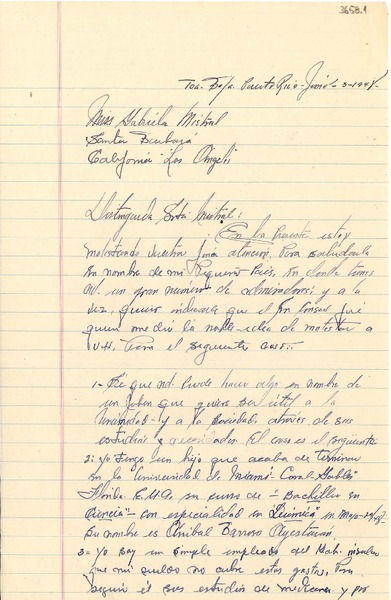 3658.1
Toa Baja Puerto Rico - Junio - 3 - 1948 -
Miss Gabriela Mistral
Santa Barbara
California - Los Angeles
Distinguida Srta. Mistral:
En la presente estoy
molestando vuestra fina atencion, para saludarla
en nombre de mi Pequeño Pais, en donde tiene
Ud. un gran numero de admiradores, y a la
vez, quiero indicarle que el
quien me dió la noble idea de molestar a
Ud. Para el siguiente caso:
1 - Sé que Ud. puede hacer algo en nombre de
un joven que quiere ser util a la
humanidad - y a la sociedad, atraves de sus
estudios y El caso es el siguiente
2 - Yo tengo un hijo que acaba de terminar
en la universidad de Miami - Coral Gables
Florida E.U.A. su curso de - Bachiller en
Ciencia - con especialidad en Quimica en Mayo
Su nombre es Anibal Barroso
3 - Yo soy un simple empleado del
que mi sueldo no cubre estos gastos, Para
seguir el sus estudios de medicina y por